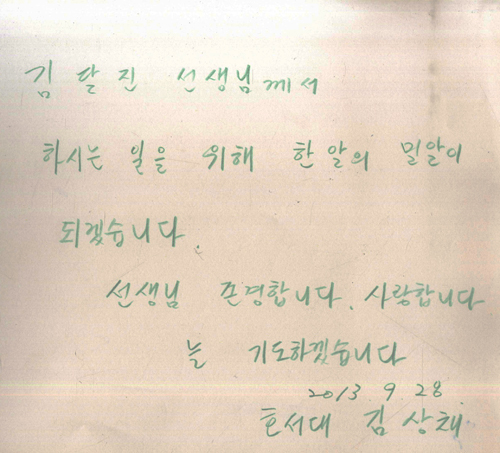 김달진 선생님께서
하시는 일을 위해 한알의 밀알이
되겠습니다.
선생님 존경합니다. 사랑합니다
늘 기도하겠습니다
2013. 9 28
호서대 김상채